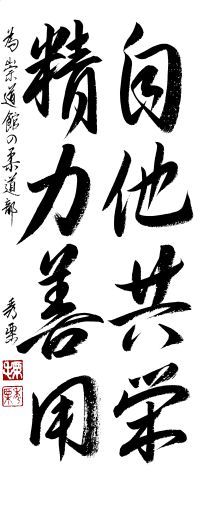 自他共栄
精力善用
為崇道館の柔道部
秀栗